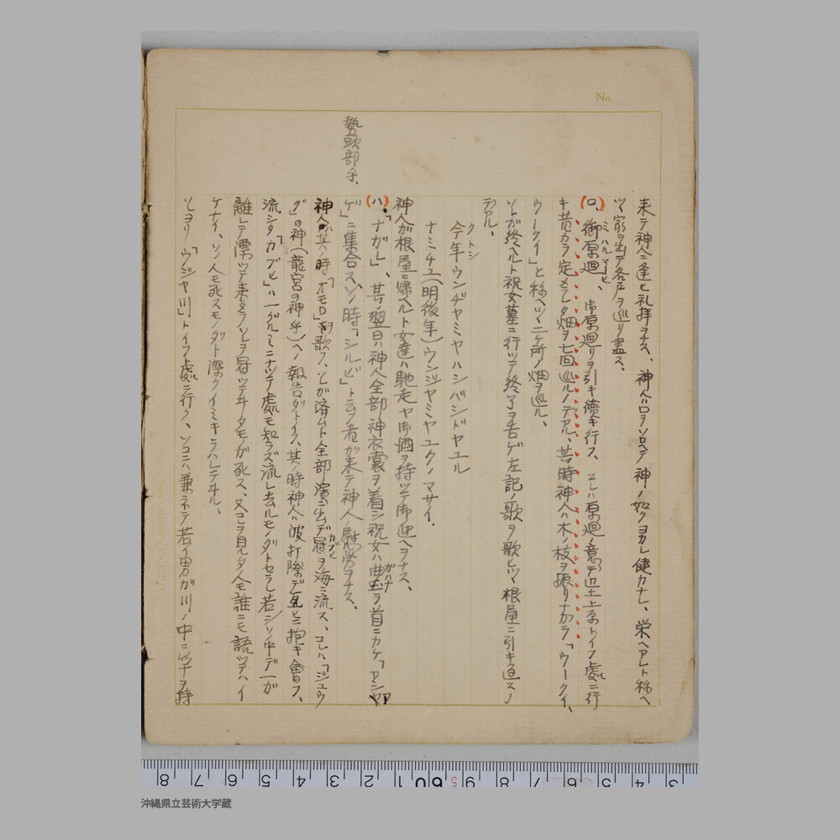 No.
来テ神人ニ逢ヒ礼拝ヲナス、神人ハ口ヲソロヘテ神ノ如クヨカレ健カナレ、栄ヘアレト称ヘ
ツヽ家ヲ出デ各戸ヲ巡リ盡ス、
(ロ、御原廻、御原廻リヲ引キ続キ行ス、コレハ原廻ノ意デ土上原トイフ處ニ行
キ昔カラ定メラレタ畑ヲ七回巡ルノデアル、其ノ時神人ハ木ノ枝ヲ振リナガラ「ウークイ、
ウークイ」と称ヘツヽ二ケ所ノ畑ヲ巡ル、
ソレガ終ヘルト祝女墓ニ行ツテ終了ヲ告ゲ左記ノ歌ヲ歌ヒツヽ根屋ニ引キ返スノ
デアル、
クトシ
今年ウンヂャミヤハシバシドヤユル
ナミチユ(明後年)ウンジヤミヤユクノマサイ.
神人ガ根屋ニ帰ヘルト女達ハ馳走ヤ御酒ヲ持ツテ御迎ヘヲナス、
(ハ、「ナガレ」、其ノ翌日ハ神人全部神衣裳ヲ着シ祝女ハ曲玉ヲ首ニカケ「アシ
ゲ」ニ集合ス、ソノ時「シルビ」ト云フ者ガ来テ神人ノ慰労ヲナス、
勢頭部乎、
神人ハ其ノ時「オモロ」ヲ歌フ、ソレガ済ムト全部濱ニ出デ冠ヲ海ニ流ス、コレハ「ジユウ
グ」の神(龍宮の神乎)ヘノ報告ダトイフ、其ノ時神人ハ波打際デ互ヒニ抱キ會フ、
流シタ「カブヒ」ハ一グルミニナツテ處モ知ラズ流レ去ルモノダトセラレ若シソノ中デ一ガ
離レテ漂ツテ来タラソレヲ冠ツテヰタモノガ死ス、又コレヲ見タ人モ誰ニモ語ツテハイ
ケナイ、ソノ人モ死スモノダト深クイミキラハレテヰル、
ソレヨリ「ウジヤ川」トイフ處ニ行ク、ソコニハ兼ネテ若イ男ガ川ノ中ニ竿ヲ持
8 7 6 5 4 3 2 1 60 9 8 7 6 5 4 3
沖縄県立芸術大学蔵